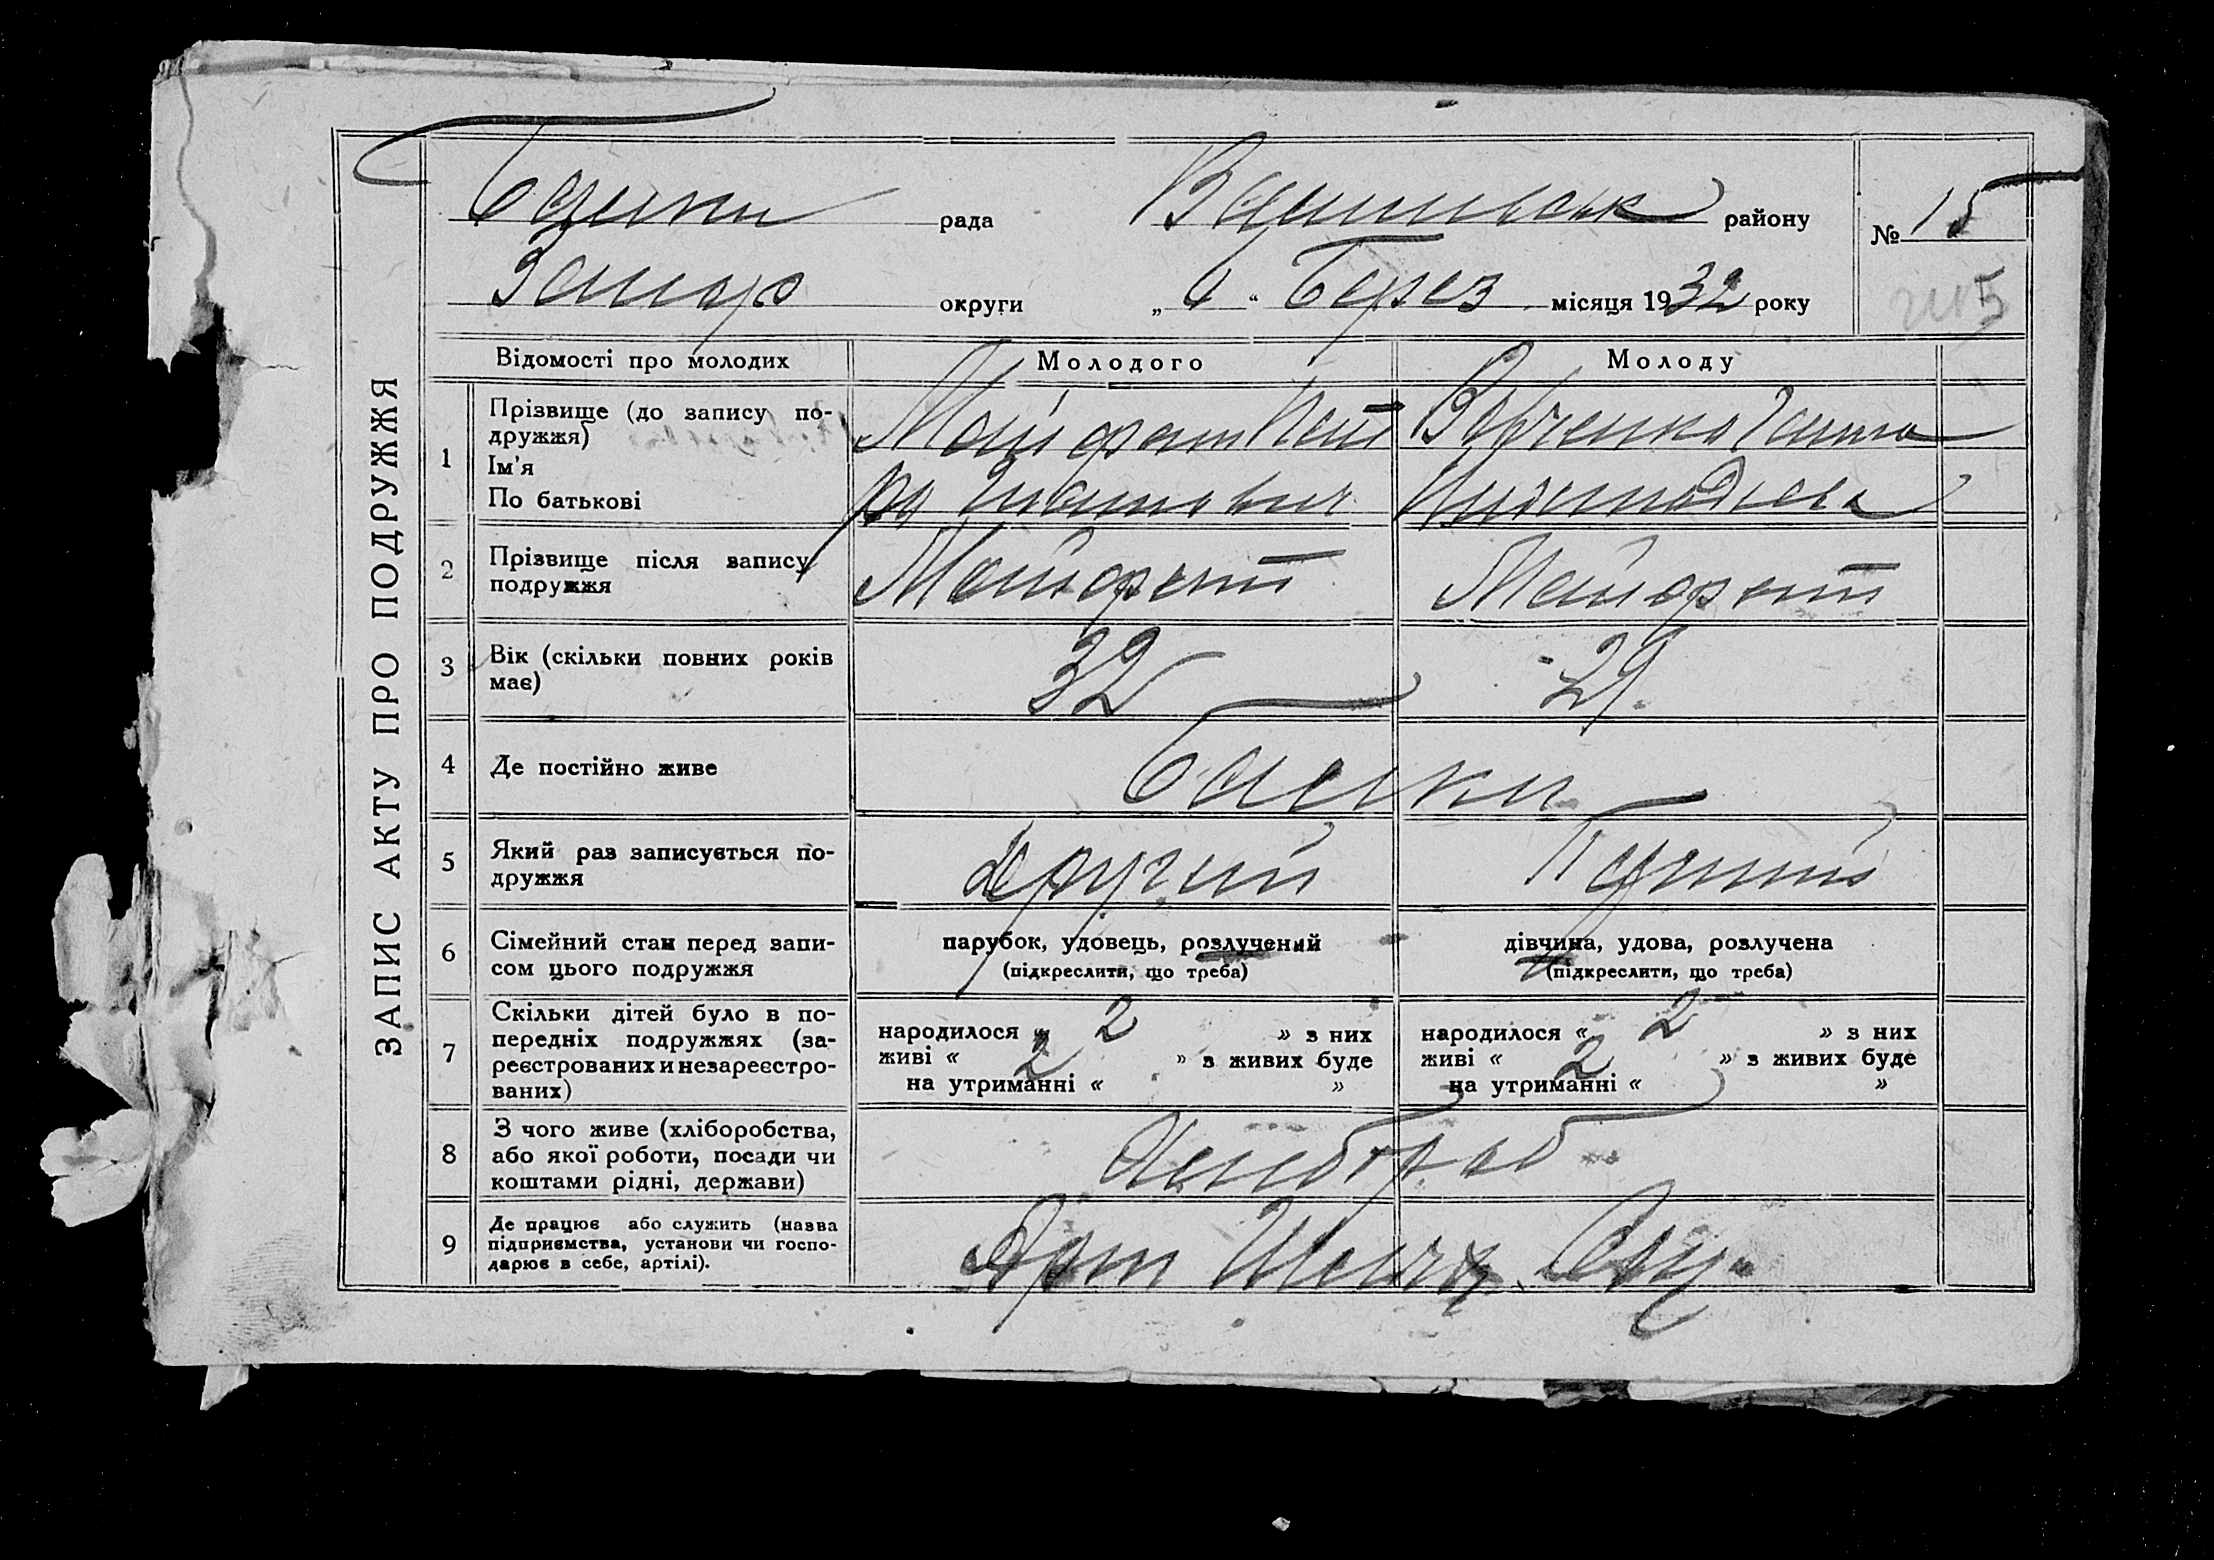 Балки рада Василівськ району № 15
Запор округи „ 4 “ Берез місяця 1932 року
ЗАПИС АКТУ ПРО ПОДРУЖЖЯ
Відомості про молодих Молодого Молоду
1 Прізвище (до запису по-
дружжя)
Ім'я
По батькові
Майфат Пет
ро Іванович
Вовченко Ганна
2 Прізвище після запису
подружжя
Майфат Майфат
3 Вік (скільки повних років
має)
32 29
4 Де постійно живе Балки
5 Який раз записується по-
дружжя
другий
6 Сімейний стан перед запи-
сом цього подружжя
парубок, удовець, розлучений
(підкреслити, що треба)
дівчина, удова, розлучена
(підкреслити, що треба)
7 Скільки дітей було в по-
передніх подружжях (за-
реєстрованих и незареєстро-
ваних)
народилося « 2 » з них
живі « 2 » з живих буде
на утриманні « »
народилося « 2 » з них
живі « 2 » з живих буде
на утриманні « »
8 З чого живе (хліборобства,
або якої роботи, посади чи
коштами рідні, держави)
Хлібороб
9 Де працює або служить (назва
підприємства, установи чи госпо-
дарює в себе, артілі).
Арт